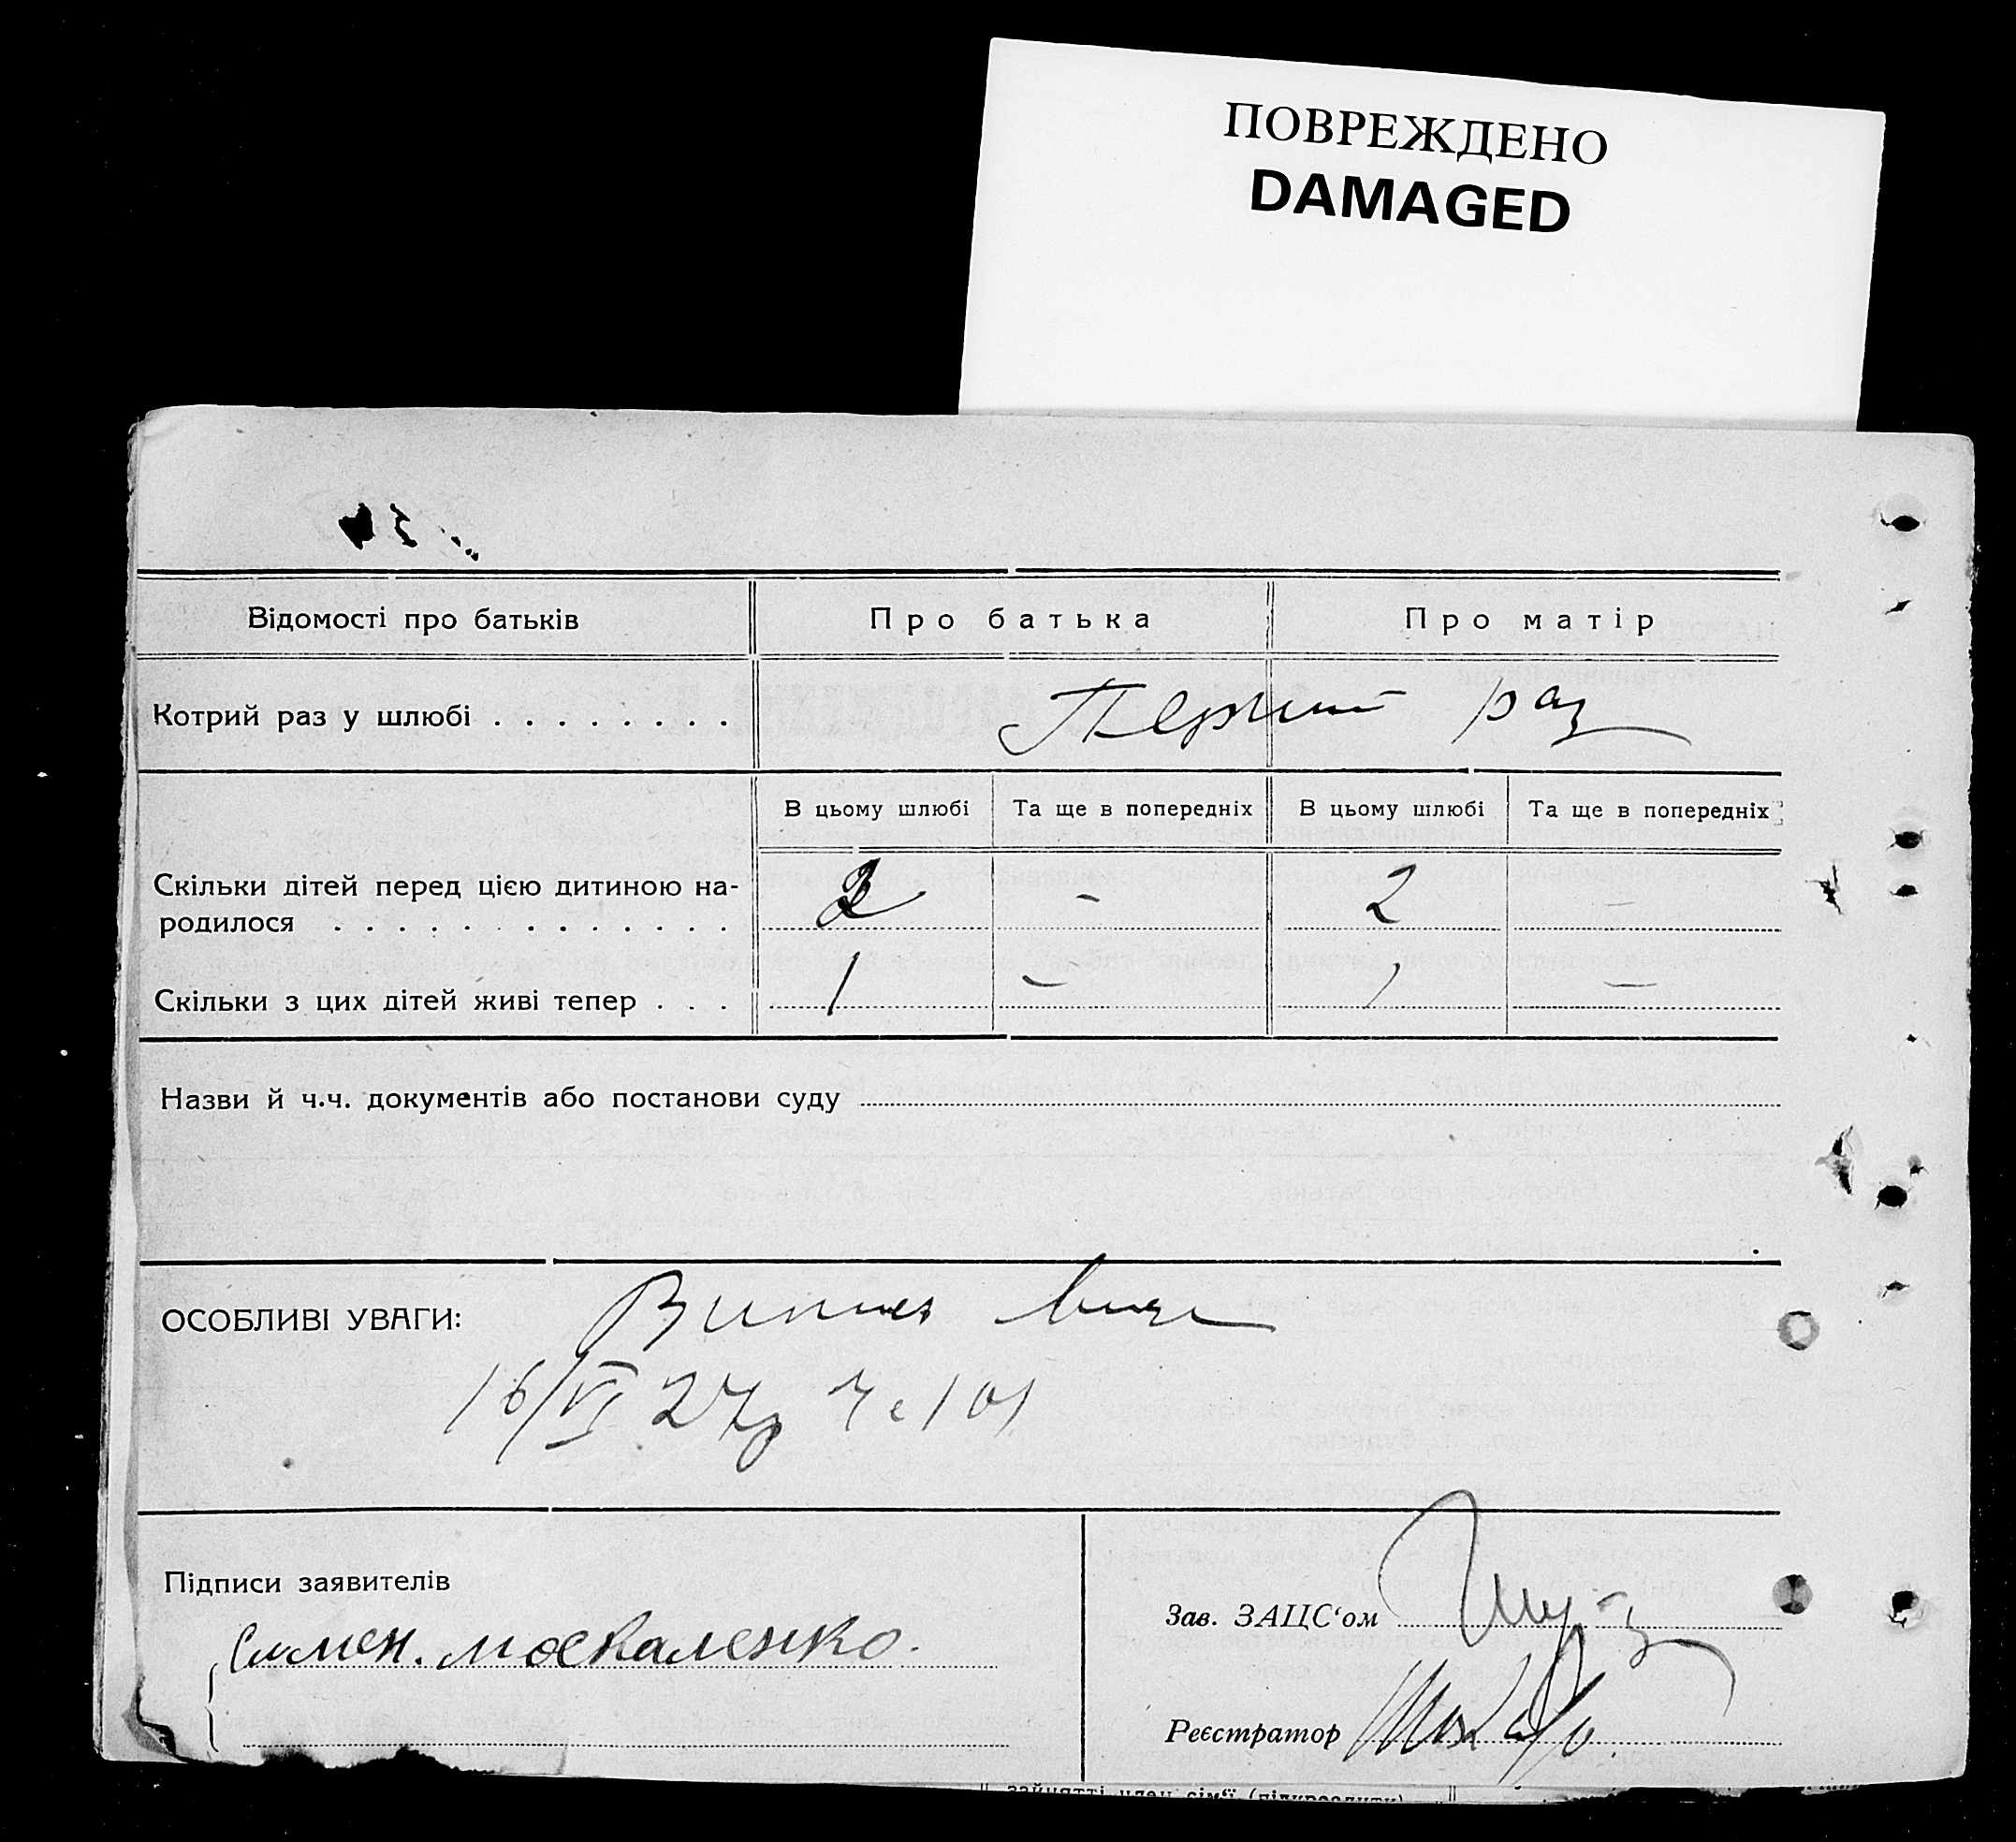 ПОВРЕЖДЕНО
DAMAGED
Відомості про батьків
Про батька
Про матір
Котрий раз у шлюбі . . . . . . . .
Перший раз
В цьому шлюбі
Та ще в попередніх
В цьому шлюбі
Та ще в попередніх
Скільки дітей перед цією дитиною на-
родилося . . . . . . . . . . . . .
2 - 2 -
Скільки з цих дітей живі тепер . . .
1 - 1 -
Назви й ч.ч. документів або постанови суду
ОСОБЛИВІ УВАГИ:
16/VI 27
Підписи заявителів
Семен. москаленко.
Зав. ЗАЦС‘ом
Реєстратор
зайнятті член сім'ї (підкреслити)